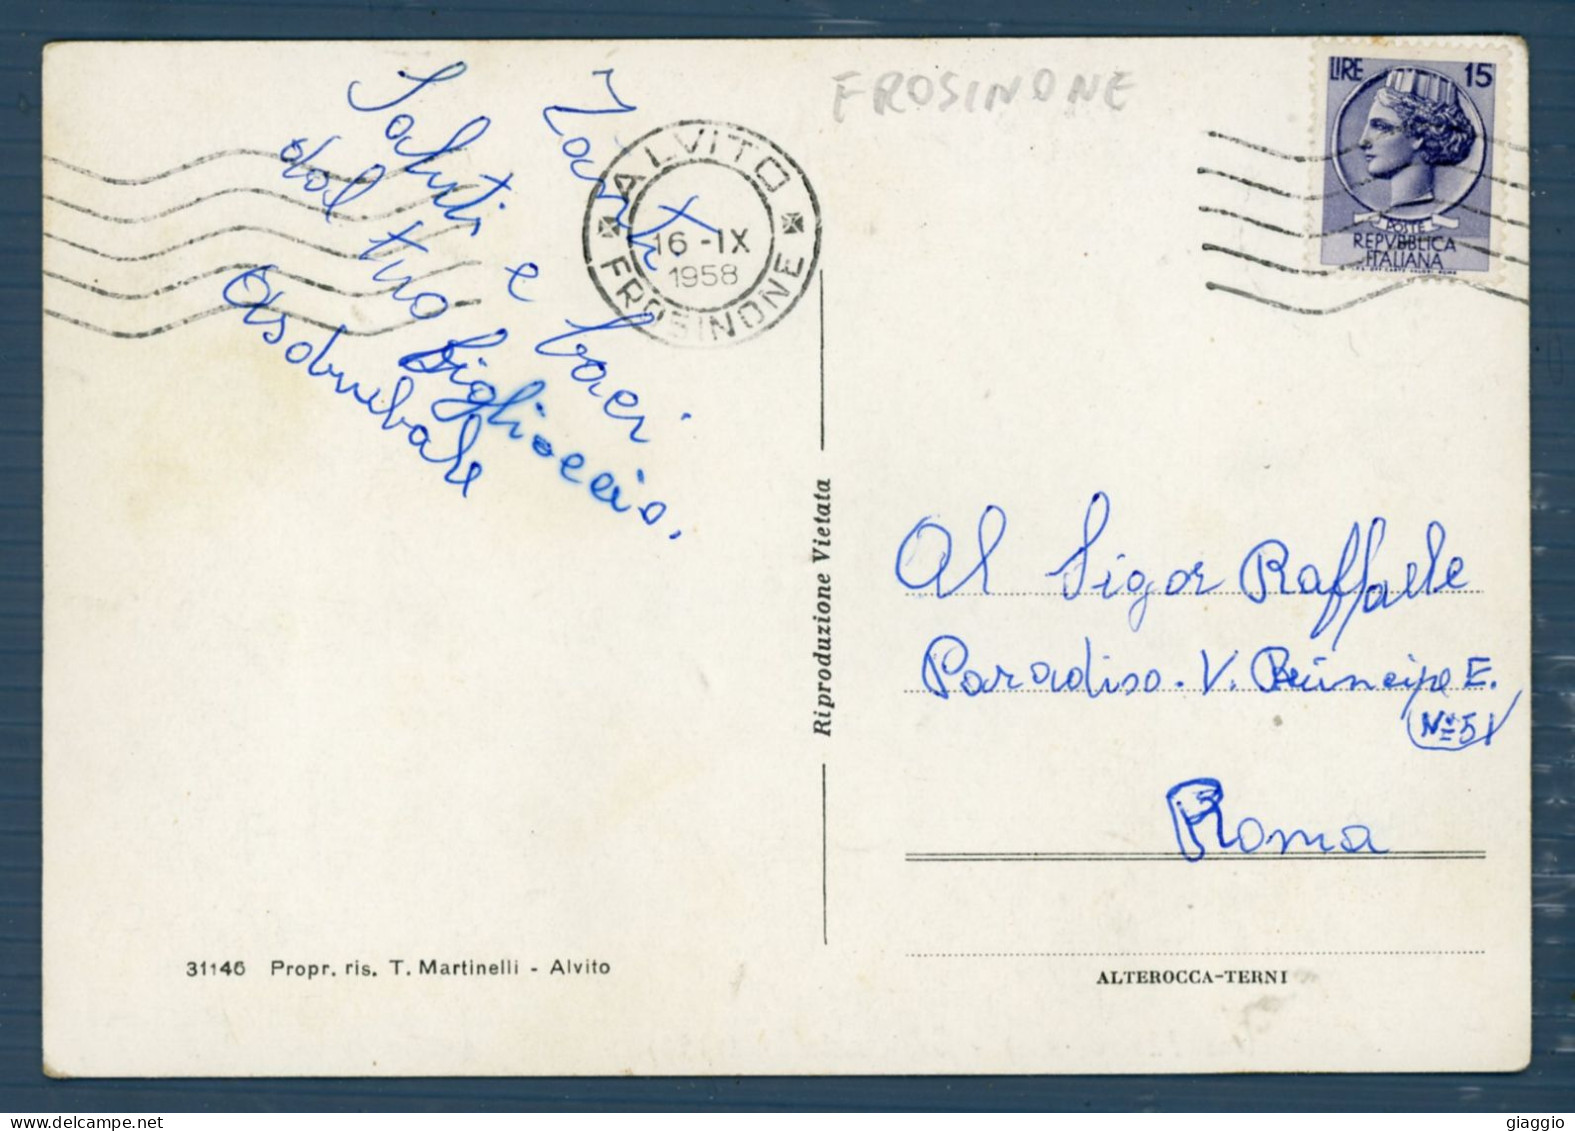 FROSINONE
LIRE 15
POSTE
REPVBBLICA
ITALIANA
ALVITO
16-IX
1958
FROSINONE
Saluti e baci
dal tuo figlioccio.
Asdrubale
Riproduzione Vietata
Al Sigor Raffaele
Paradiso. V. Principe E.
Nº 51
Roma
31146 Propr. ris. T. Martinelli - Alvito
ALTEROCCA-TERNI
giaggio